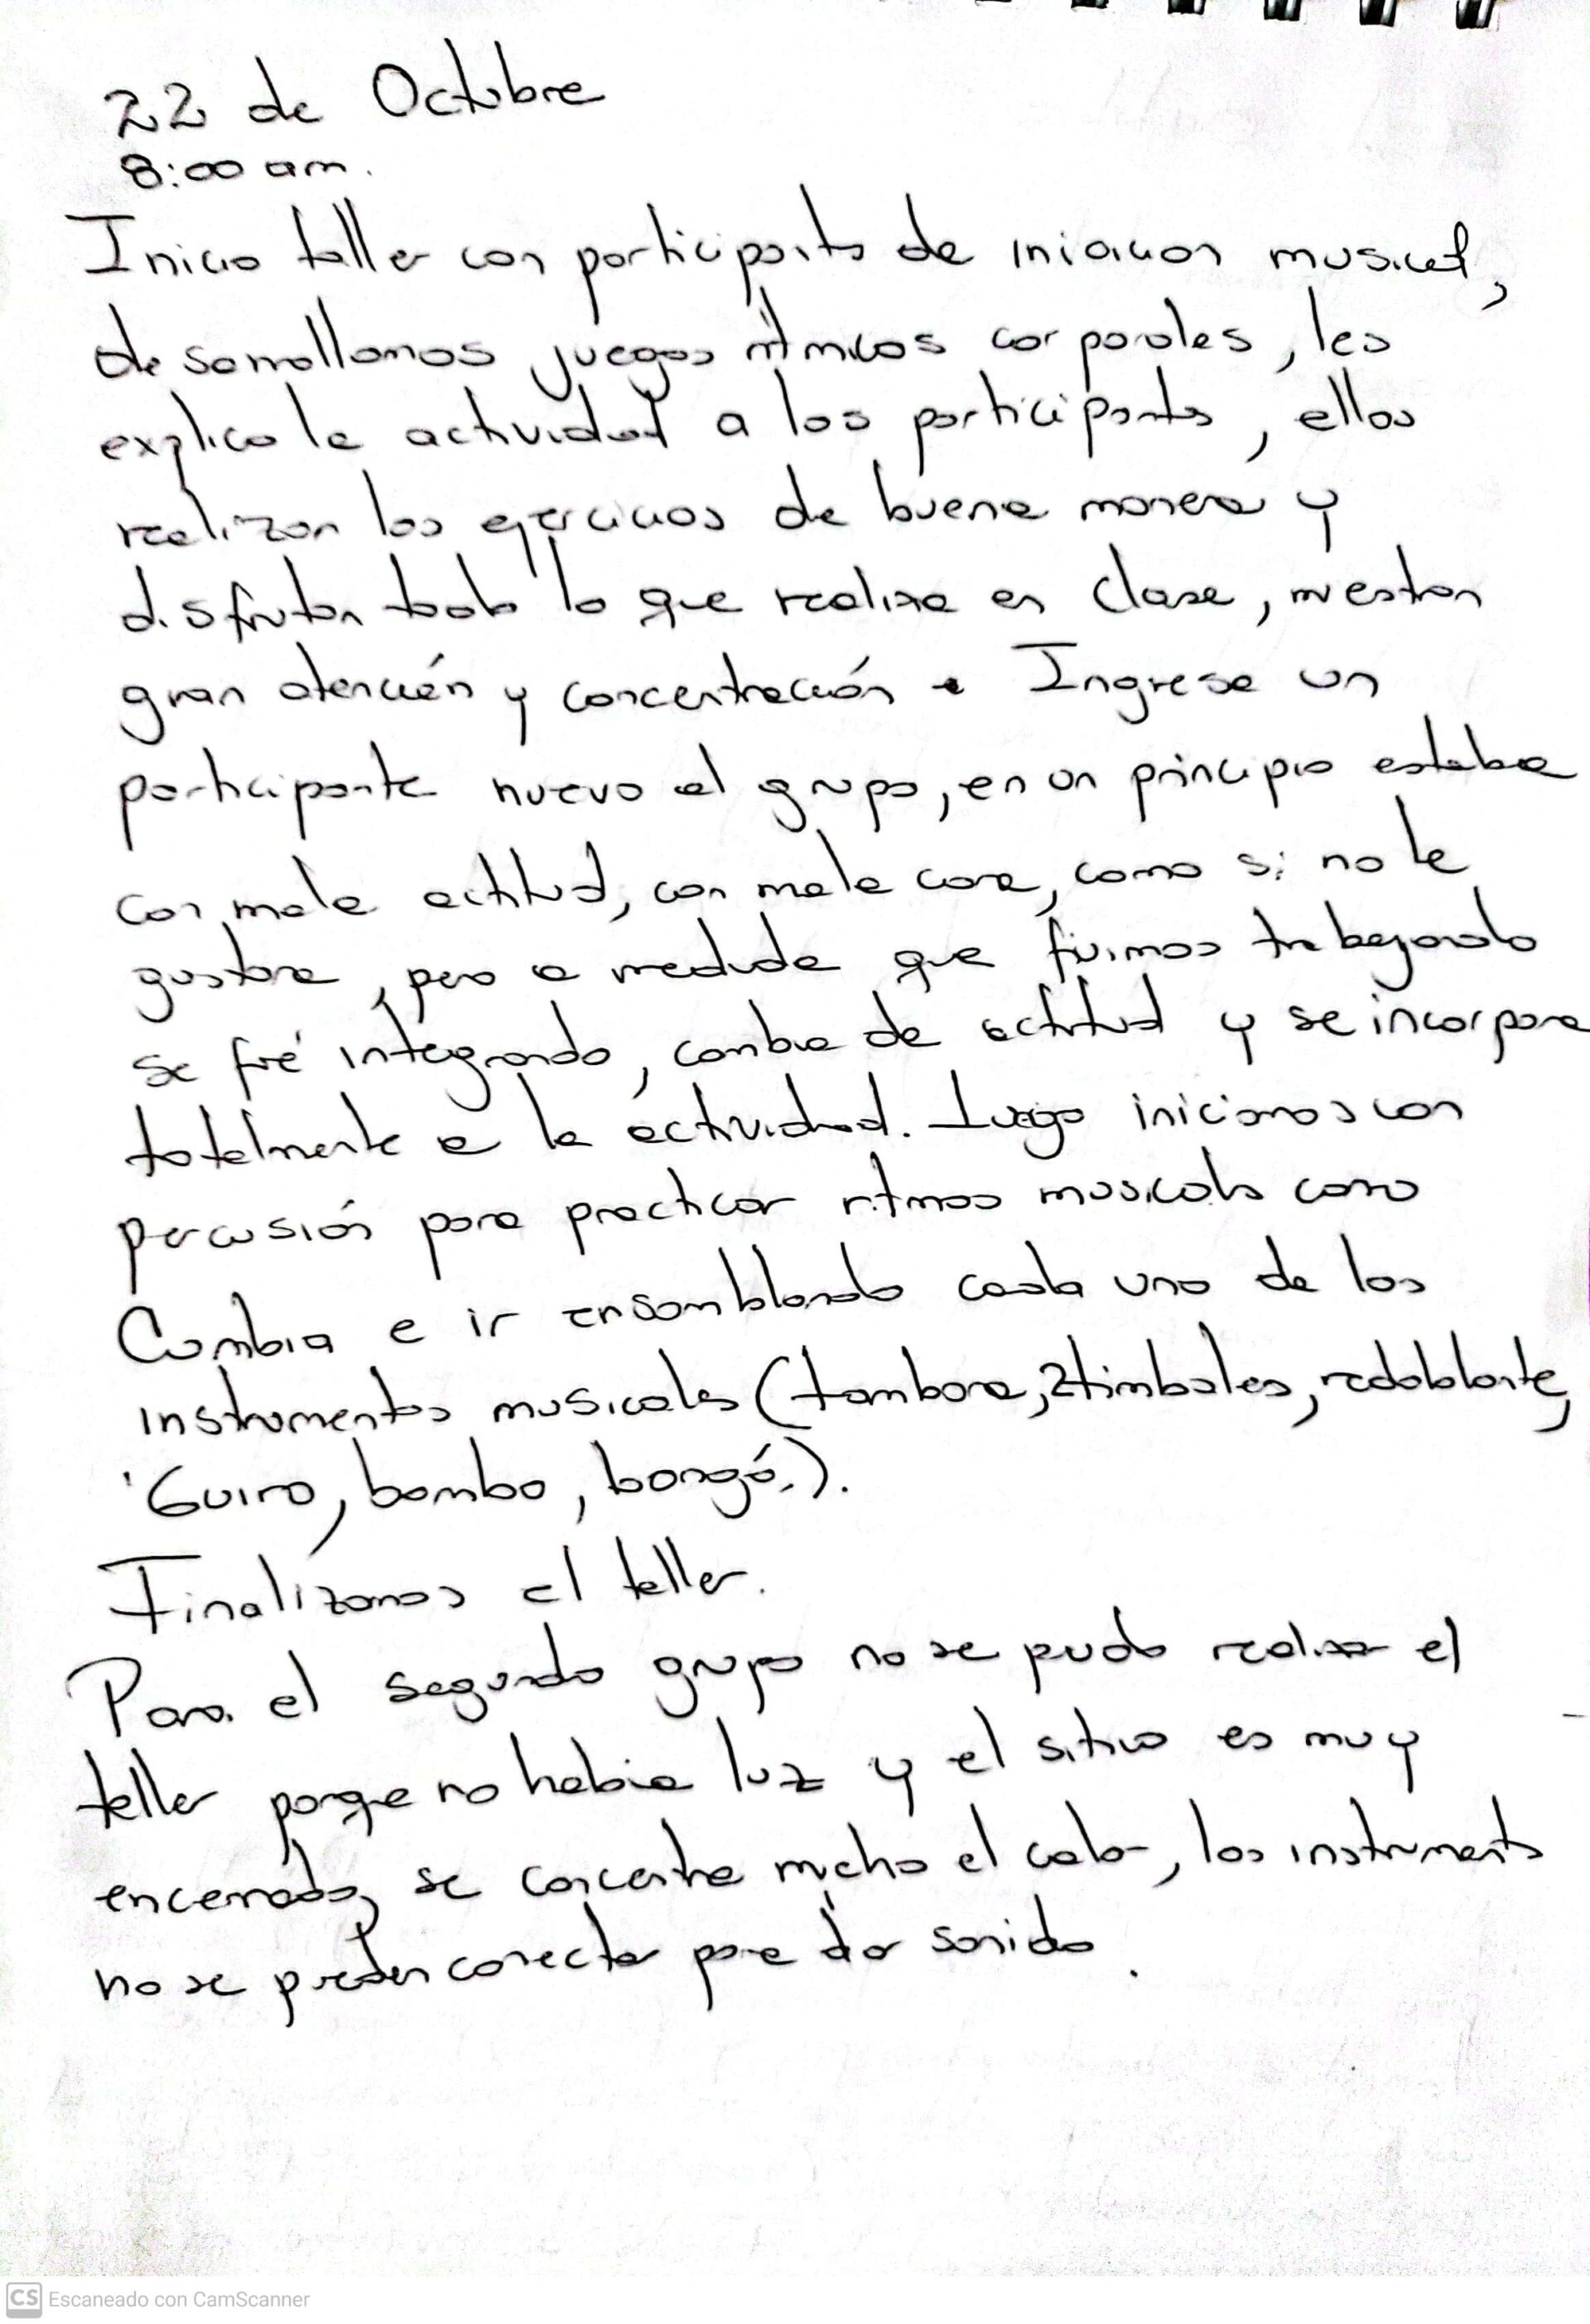 22 de Octubre
8:00 am.
Inicio taller con participants de iniciacion musical,
desarrollamos juegos rítmicos corporales, les
explico la actividad a los participantes, ellos
realizan los ejercicios de buena manera y
disfrutan todo lo que realiza en clase, muestran
gran atención y concentración. Ingresa un
participante nuevo al grupo, en un principio estaba
con mala actitud, con mala cara, como si no le
gustara, pero a medida que fuimos trabajando
se fué integrando, cambia de actitud y se incorpora
totalmente a la actividad. Luego iniciamos con
percusión para practicar ritmos musicals como
Cumbia e ir ensamblando cada uno de los
instrumentos musicales (tambora, 2 timbales, redoblante,
Guiro, bombo, bongó.).
Finalizamos el taller.
Para el segundo grupo no se pudo realizar el
taller porque no habia luz y el sitio es muy
encerrado, se concentra mucho el calor, los instruments
no se pueden conectar para dar sonido.
CS Escaneado con CamScanner